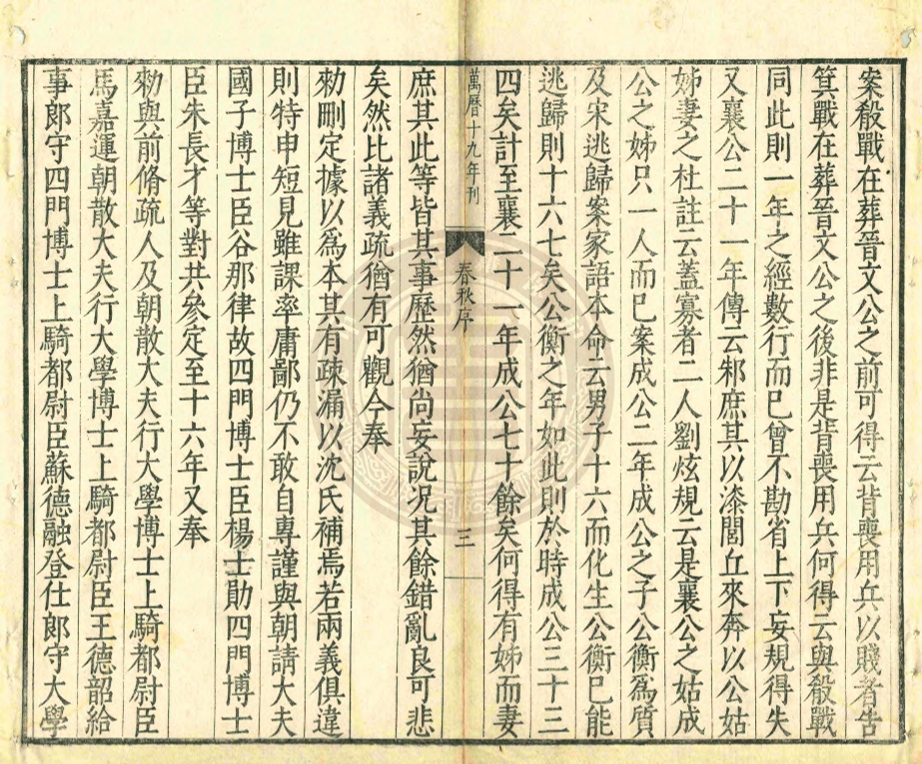 案殽戰在葬晉文公之前可得云背喪用兵以賤者告
箕戰在葬晉文公之後非是背喪用兵何得云與殽戰
同此則一年之經數行而已曾不勘省上下妄規得失
又襄公二十一年傳云邾庶其以漆閭丘來奔以公姑
姊妻之杜註云蓋寡者二人劉炫規云是襄公之姑成
公之姊只一人而已案成公二年成公之子公衡為質
及宋逃歸案家語本命云男子十六而化生公衡已能
逃歸則十六七矣公衡之年如此則於時成公三十三
四矣計至襄二十一年成公七十餘矣何得有姊而妻
萬曆十九年刊
春秋序
三
庶其此等皆其事歷然猶尚妄說况其餘錯亂良可悲
矣然比諸義疏猶有可觀今奉
勑刪定據以為本其有疎漏以沈氏補焉若兩義俱違
則特申短見雖課率庸鄙仍不敢自專謹與朝請大夫
國子博士臣谷那律故四門博士臣楊士勛四門博士
臣朱長才等對共參定至十六年又奉
勑與前脩疏人及朝散大夫行大學博士上騎都尉臣
馬嘉運朝散大夫行大學博士上騎都尉臣王德韶給
事郎守四門博士上騎都尉臣蘇德融登仕郎守大學